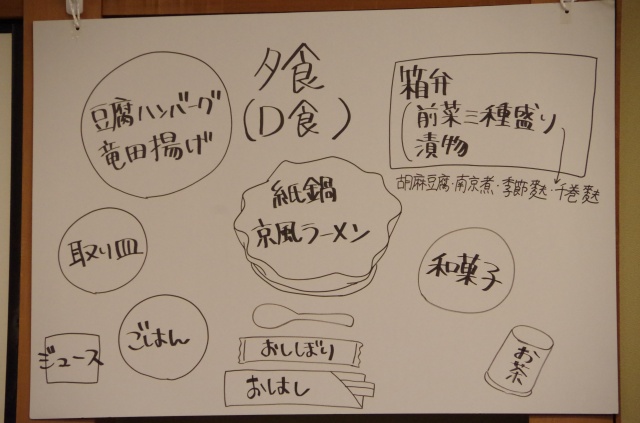 夕食
(D食)
豆腐ハンバーグ
竜田揚げ
箱弁
前菜三種盛り
漬物
胡麻豆腐・南京煮・季節麩・千巻麩
紙鍋
京風ラーメン
取り皿
和菓子
ごはん
ジュース
おしぼり
おはし
お茶